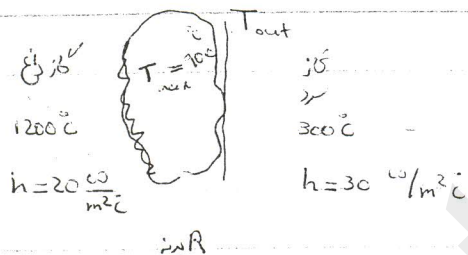 T out
گاز داغ
گاز سرد
1200 °C
300 °C
h = 20 ω/m²c
h = 30 ω/m²c
R